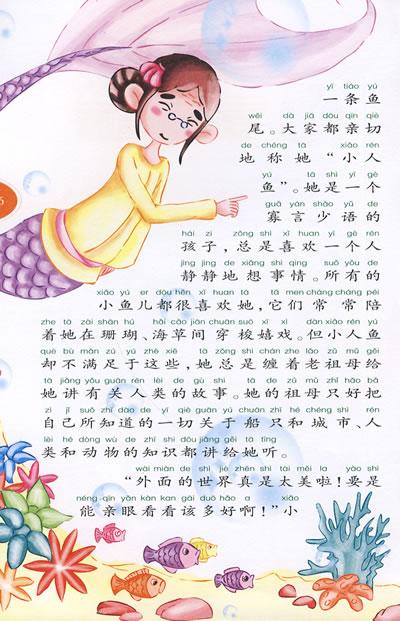 yī tiáo yú
一条鱼
wěi dà jiā dōu qīn qiè
尾。大家都亲切
de chēng tā xiǎo rén
地称她“小人
yú tā shì yī gè
鱼”。她是一个
guǎ yán shǎo yǔ de
寡言少语的
hái zi zǒng shì xǐ huān yī gè rén
孩子，总是喜欢一个人
jìng jìng de xiǎng shì qing suǒ yǒu de
静静地想事情。所有的
xiǎo yú er dōu hěn xǐ huān tā tā men cháng cháng péi
小鱼儿都很喜欢她，它们常常陪
zhe tā zài shān hú hǎi cǎo jiān chuān suō xī xì dàn xiǎo rén yú
着她在珊瑚、海草间穿梭嬉戏。但小人鱼
què bù mǎn zú yú zhè xiē tā zǒng shì chán zhe lǎo zǔ mǔ gěi
却不满足于这些，她总是缠着老祖母给
tā jiǎng yǒu guān rén lèi de gù shi tā de zǔ mǔ zhǐ hǎo bǎ
她讲有关人类的故事。她的祖母只好把
zì jǐ suǒ zhī dào de yī qiè guān yú chuán zhī hé chéng shì rén
自己所知道的一切关于船只和城市、人
lèi hé dòng wù de zhī shi dōu jiǎng gěi tā tīng
类和动物的知识都讲给她听。
wài miàn de shì jiè zhēn shì tài měi la yào shi
“外面的世界真是太美啦！要是
néng qīn yǎn kàn kan gāi duō hǎo a xiǎo
能亲眼看看该多好啊！”小